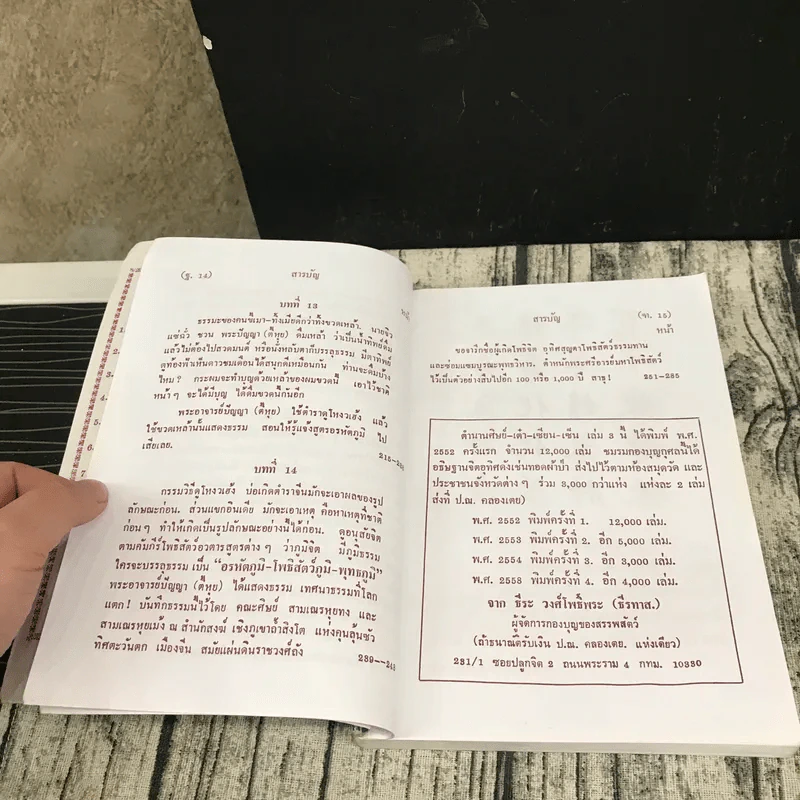 (ฐ. 14) สารบัญ
บทที่ 13
หน้า
ธรรมะของคนขี้เมา-ทั้งเมียดีกว่าทั้งขวดเหล้า. นายชิว
แซ่ถั่ว ชวน พระปัญญา (ตี้หุย) ดื่มเหล้า ว่าเป็นน้ำทิพย์ดื่ม
แล้วไม่ต้องไปสวดมนต์ หรือนั่งหลับตาก็บรรลุธรรม มีตาทิพย์
ตูท้องฟ้าเห็นดาวชมเดือนได้สนุกดีเหมือนกัน ท่านจะดื่มบ้าง
ไหม? กระผมจะทำบุญด้วยเหล้าของผมขวดนี้ เอาไว้ชาติ
หน้าๆ จะได้มีบุญ ได้ดื่มขวดนี้กันอีก
พระอาจารย์ปัญญา (ตี้หุย) ใช้ตำราดูโหงวเฮ้ง แล้ว
ใช้ขวดเหล้านั้นแสดงธรรม สอนให้รู้แจ้งสูตรอรหัตภูมิ ไป
เสียเลย.
บทที่ 14
กรรมวิธีดูโหงวเฮ้ง บ่อเกิดตำราจีนมักจะเอาผลของรูป
ลักษณะก่อน. ส่วนแขกอินเดีย มักจะเอาเหตุ คือหาเหตุที่ชาติ
ก่อนๆ ทำให้เกิดเป็นรูปลักษณะอย่างนี้ได้ก่อน. ดูอนุสัยจิต
ตามคัมภีร์โพธิสัตว์อวตารสูตรต่างๆ ว่าภูมิจิต มีภูมิธรรม
ใครจะบรรลุธรรม เป็น "อรหัตภูมิ-โพธิสัตว์ภูมิ-พุทธภูมิ"
พระอาจารย์ปัญญา (ตี้หุย) ได้แสดงธรรม เทศนาธรรมที่โลก
แตก! บันทึกธรรมนี้ไว้โดย คณะศิษย์ สามเณรหุยทง และ
สามเณรหุยเม้ง ณ สำนักสงฆ์ เชิงภูเขาถ้ำสิงโต แห่งคุนลุ้นซัว
ทิศตะวันตก เมืองจีน สมัยแผ่นดินราชวงศ์ถัง
สารบัญ (ฑ. 15)
หน้า
ขอจารึกชื่อผู้เกิดโพธิจิต อุทิศสูญตาโพธิสัตว์ธรรมทาน
และซ่อมแซมบูรณะพุทธวิหาร. ตำหนักพระศรีอารย์มหาโพธิสัตว์
ไว้เป็นตัวอย่างสืบไปอีก 100 หรือ 1,000 ปี สาธุ! 251-285
ตำนานศิษย์-เต๋า-เซียน-เซ็น เล่ม 3 นี้ ได้พิมพ์ พ.ศ.
2552 ครั้งแรก จำนวน 12,000 เล่ม ชมรมกองบุญกุศลนี้ได้
อธิษฐานจิตอุทิศดังเช่นทอดผ้าป่า ส่งไปไว้ตามห้องสมุดวัด และ
ประชาชนจังหวัดต่างๆ ร่วม 3,000 กว่าแห่ง แห่งละ 2 เล่ม
ส่งที่ ป.ณ. คลองเตย)
พ.ศ. 2552 พิมพ์ครั้งที่ 1. 12,000 เล่ม.
พ.ศ. 2553 พิมพ์ครั้งที่ 2. อีก 5,000 เล่ม.
พ.ศ. 2554 พิมพ์ครั้งที่ 3. อีก 3,000 เล่ม.
พ.ศ. 2558 พิมพ์ครั้งที่ 4. อีก 4,000 เล่ม.
จาก ธีระ วงศ์โพธิ์พระ (ธีรทาส.)
ผู้จัดการกองบุญของสรรพสัตว์
(ถ้าธนาณัติรับเงิน ป.ณ. คลองเตย. แห่งเดียว)
231/1 ซอยปลูกจิต 2 ถนนพระราม 4 กทม. 10330